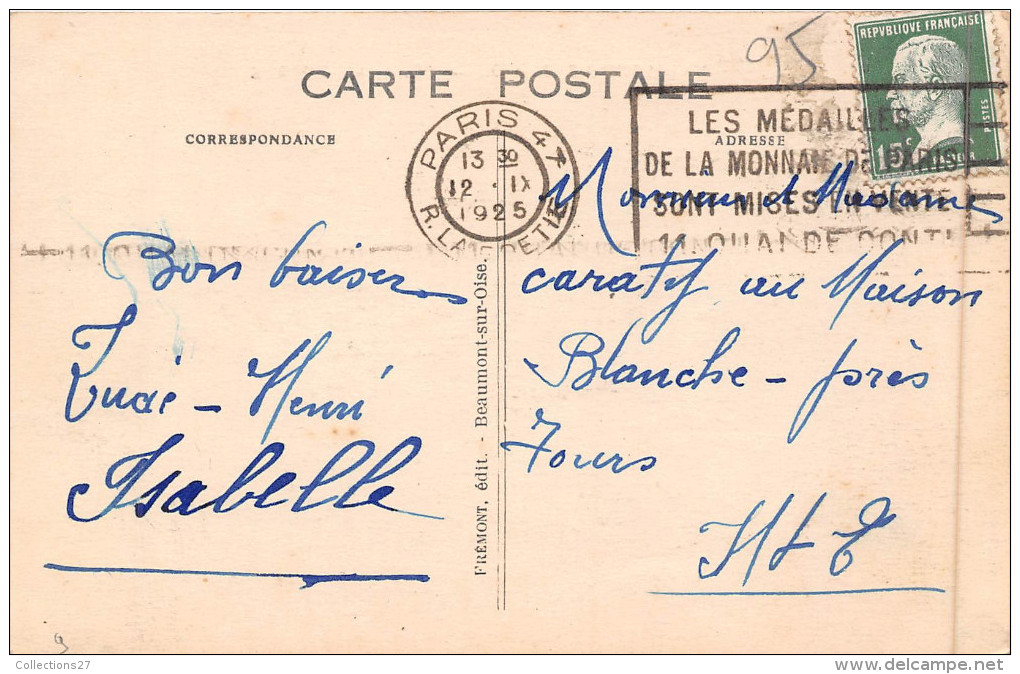 95
CARTE POSTALE
CORRESPONDANCE
ADRESSE
REPVBLIQUE FRANÇAISE
POSTES
15c
PARIS 47
13 30
12 · IX
1925
R. LA
LES MÉDAILLES
DE LA MONNAIE DE PARIS
SONT MISES EN VENTE
11 QUAI DE CONTI
Bon baisers
Henri
Isabelle
Monsieur et Madame
caraty au Maison
Blanche - près
Tours
I & L
FRÉMONT, édit. - Beaumont-sur-Oise.
9
Collections27
delcampe.net